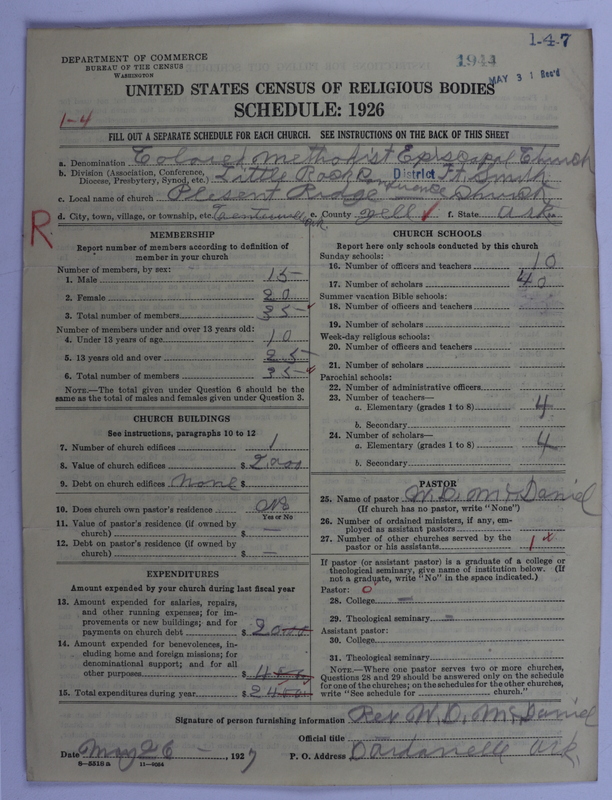 1-4-7
DEPARTMENT OF COMMERCE
BUREAU OF THE CENSUS
WASHINGTON
1944
MAY 31 Rec'd
UNITED STATES CENSUS OF RELIGIOUS BODIES
SCHEDULE: 1926
1-4
FILL OUT A SEPARATE SCHEDULE FOR EACH CHURCH. SEE INSTRUCTIONS ON THE BACK OF THIS SHEET
a. Denomination Colored Methodist Episcopal Church
b. Division (Association, Conference, Diocese, Presbytery, Synod, etc.) Little Rock Conference District Ft. Smith
c. Local name of church Plesent Ridge Church
d. City, town, village, or township, etc. Centerville Ark. e. County Yell f. State Ark.
R
MEMBERSHIP
Report number of members according to definition of
member in your church
Number of members, by sex:
1. Male 15
2. Female 20
3. Total number of members 35
Number of members under and over 13 years old:
4. Under 13 years of age 10
5. 13 years old and over 25
6. Total number of members 35
NOTE.—The total given under Question 6 should be the
same as the total of males and females given under Question 3.
CHURCH BUILDINGS
See instructions, paragraphs 10 to 12
7. Number of church edifices 1
8. Value of church edifices $ 2000
9. Debt on church edifices none $
10. Does church own pastor's residence no
Yes or No
11. Value of pastor's residence (if owned by
church) $ —
12. Debt on pastor's residence (if owned by
church) $ —
EXPENDITURES
Amount expended by your church during last fiscal year
13. Amount expended for salaries, repairs,
and other running expenses; for im-
provements or new buildings; and for
payments on church debt $ 20
14. Amount expended for benevolences, in-
cluding home and foreign missions; for
denominational support; and for all
other purposes $ 4
15. Total expenditures during year $ 24
CHURCH SCHOOLS
Report here only schools conducted by this church
Sunday schools:
16. Number of officers and teachers 10
17. Number of scholars 40
Summer vacation Bible schools:
18. Number of officers and teachers
19. Number of scholars
Week-day religious schools:
20. Number of officers and teachers
21. Number of scholars
Parochial schools:
22. Number of administrative officers
23. Number of teachers—
a. Elementary (grades 1 to 8) 4
b. Secondary
24. Number of scholars—
a. Elementary (grades 1 to 8) 4
b. Secondary
PASTOR
25. Name of pastor W. D. McDaniel
(If church has no pastor, write "None")
26. Number of ordained ministers, if any, em-
ployed as assistant pastors
27. Number of other churches served by the
pastor or his assistants 1
If pastor (or assistant pastor) is a graduate of a college or
theological seminary, give name of institution below. (If
not a graduate, write "No" in the space indicated.)
Pastor: 0
28. College —
29. Theological seminary —
Assistant pastor:
30. College
31. Theological seminary
NOTE.—Where one pastor serves two or more churches,
Questions 28 and 29 should be answered only on the schedule
for one of the churches; on the schedules for the other churches,
write "See schedule for church."
Signature of person furnishing information Rev W. D. McDaniel
Official title
Date May 26 —, 1927 P. O. Address Dardanelle Ark.
8—5516a 11—9064